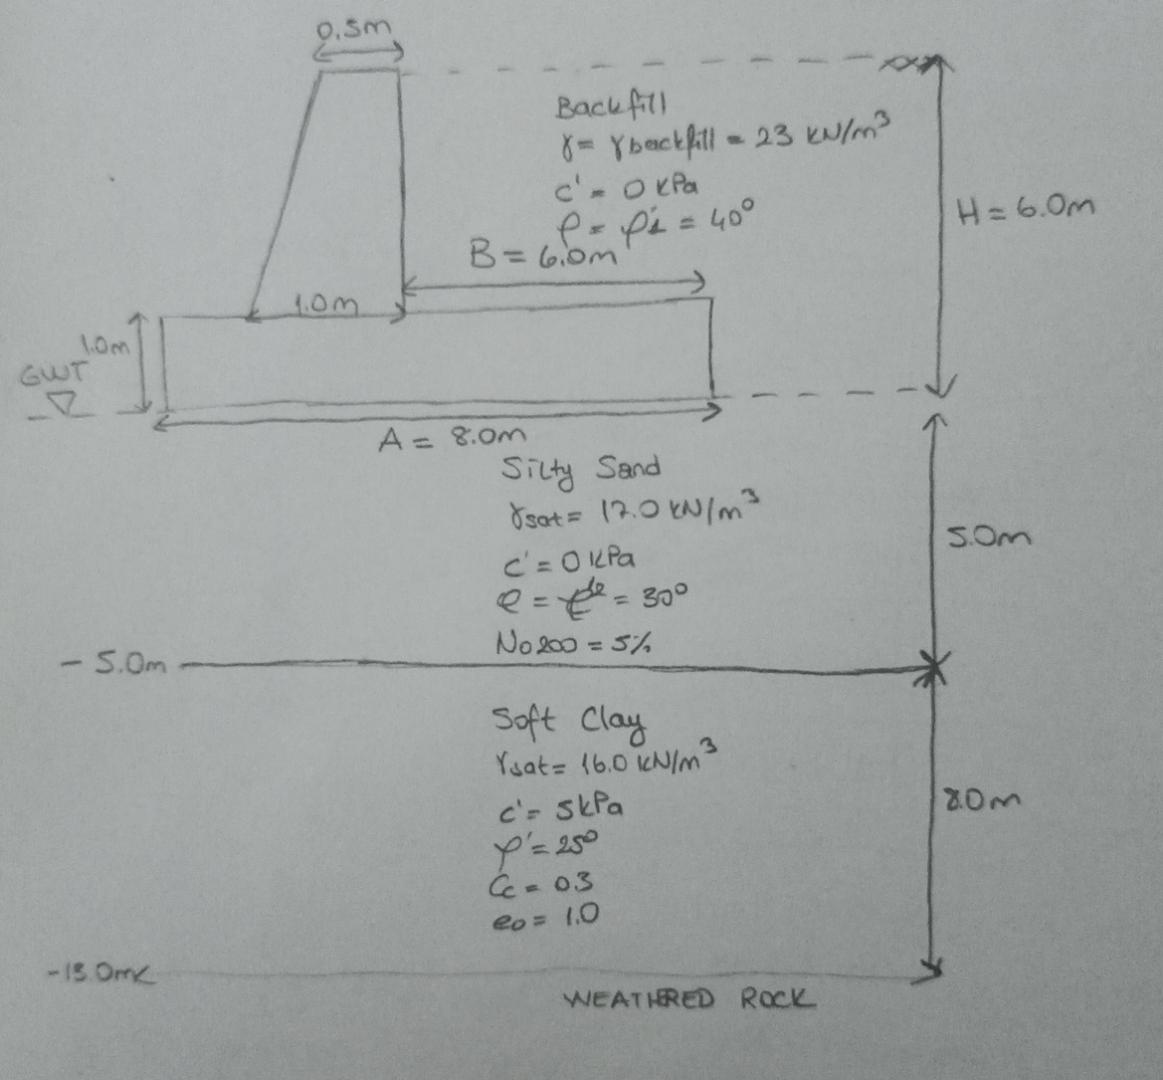 0.5m
Backfill
γ = γbackfill = 23 kN/m³
c' = 0 kPa
φ = φ'1 = 40°
H = 6.0m
B = 6.0m
1.0m
1.0m
GWT
A = 8.0m
Silty Sand
γsat = 17.0 kN/m³
c' = 0 kPa
φ = = 30°
No200 = 5%
5.0m
- 5.0m
Soft Clay
γsat = 16.0 kN/m³
c' = 5kPa
φ' = 25°
Cc = 0.3
e0 = 1.0
8.0m
-13.0m
WEATHERED ROCK